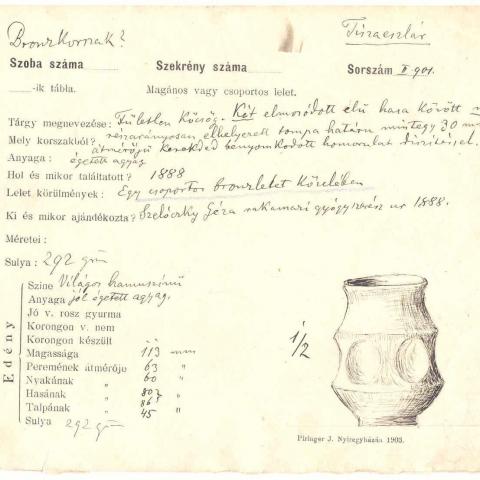 Bronzkorszak?
Tiszaeszlár
Szoba száma
Szekrény száma
Sorszám II 901.
-ik tábla.
Magános vagy csoportos lelet.
Tárgy megnevezése: Fületlen köcsög. Két elmosódott élű hasa között
Mely korszakból? részarányosan elhelyezett tompa határu mintegy 30 mm
átmérőjű kerekded benyomkodott homorulat díszítéssel.
Anyaga: égetett agyag
Hol és mikor találtatott? 1888
Lelet körülmények: Egy csoportos bronzlelet közelében
Ki és mikor ajándékozta? Szelóczky Géza rakamazi gyógyszerész ur 1888.
Méretei:
Sulya: 292 gm
Edény
Szine Világos hamuszínű
Anyaga jól égetett agyag.
Jó v. rosz gyurma
Korongon v. nem
Korongon készült
Magassága 113 mm
Peremének átmérője 63 "
Nyakának " 60 "
Hasának " 80 "
86
Talpának " 45 "
Sulya 292 gm
1/2
Piringer J. Nyiregyházán 1903.